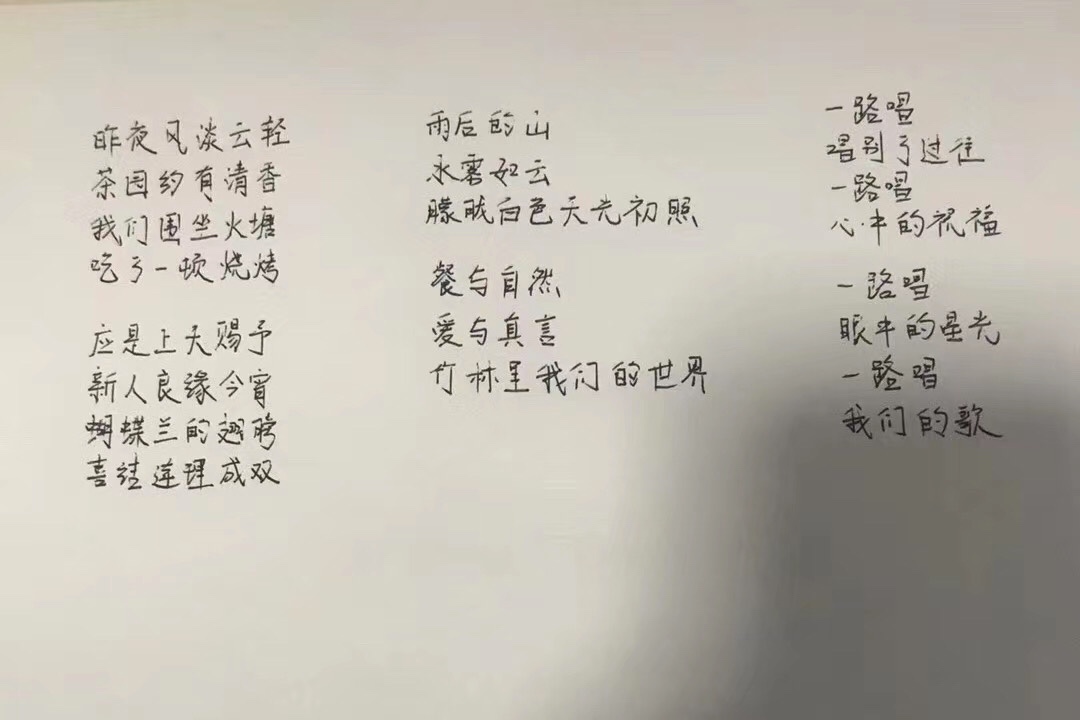 昨夜风淡云轻
茶园约有清香
我们围坐火塘
吃了一顿烧烤
应是上天赐予
新人良缘今宵
蝴蝶兰的翅膀
喜结连理成双
雨后的山
水雾如云
朦胧白色天光初照
餐与自然
爱与真言
竹林里我们的世界
一路唱
唱别了过往
一路唱
心中的祝福
一路唱
眼中的星光
一路唱
我们的歌